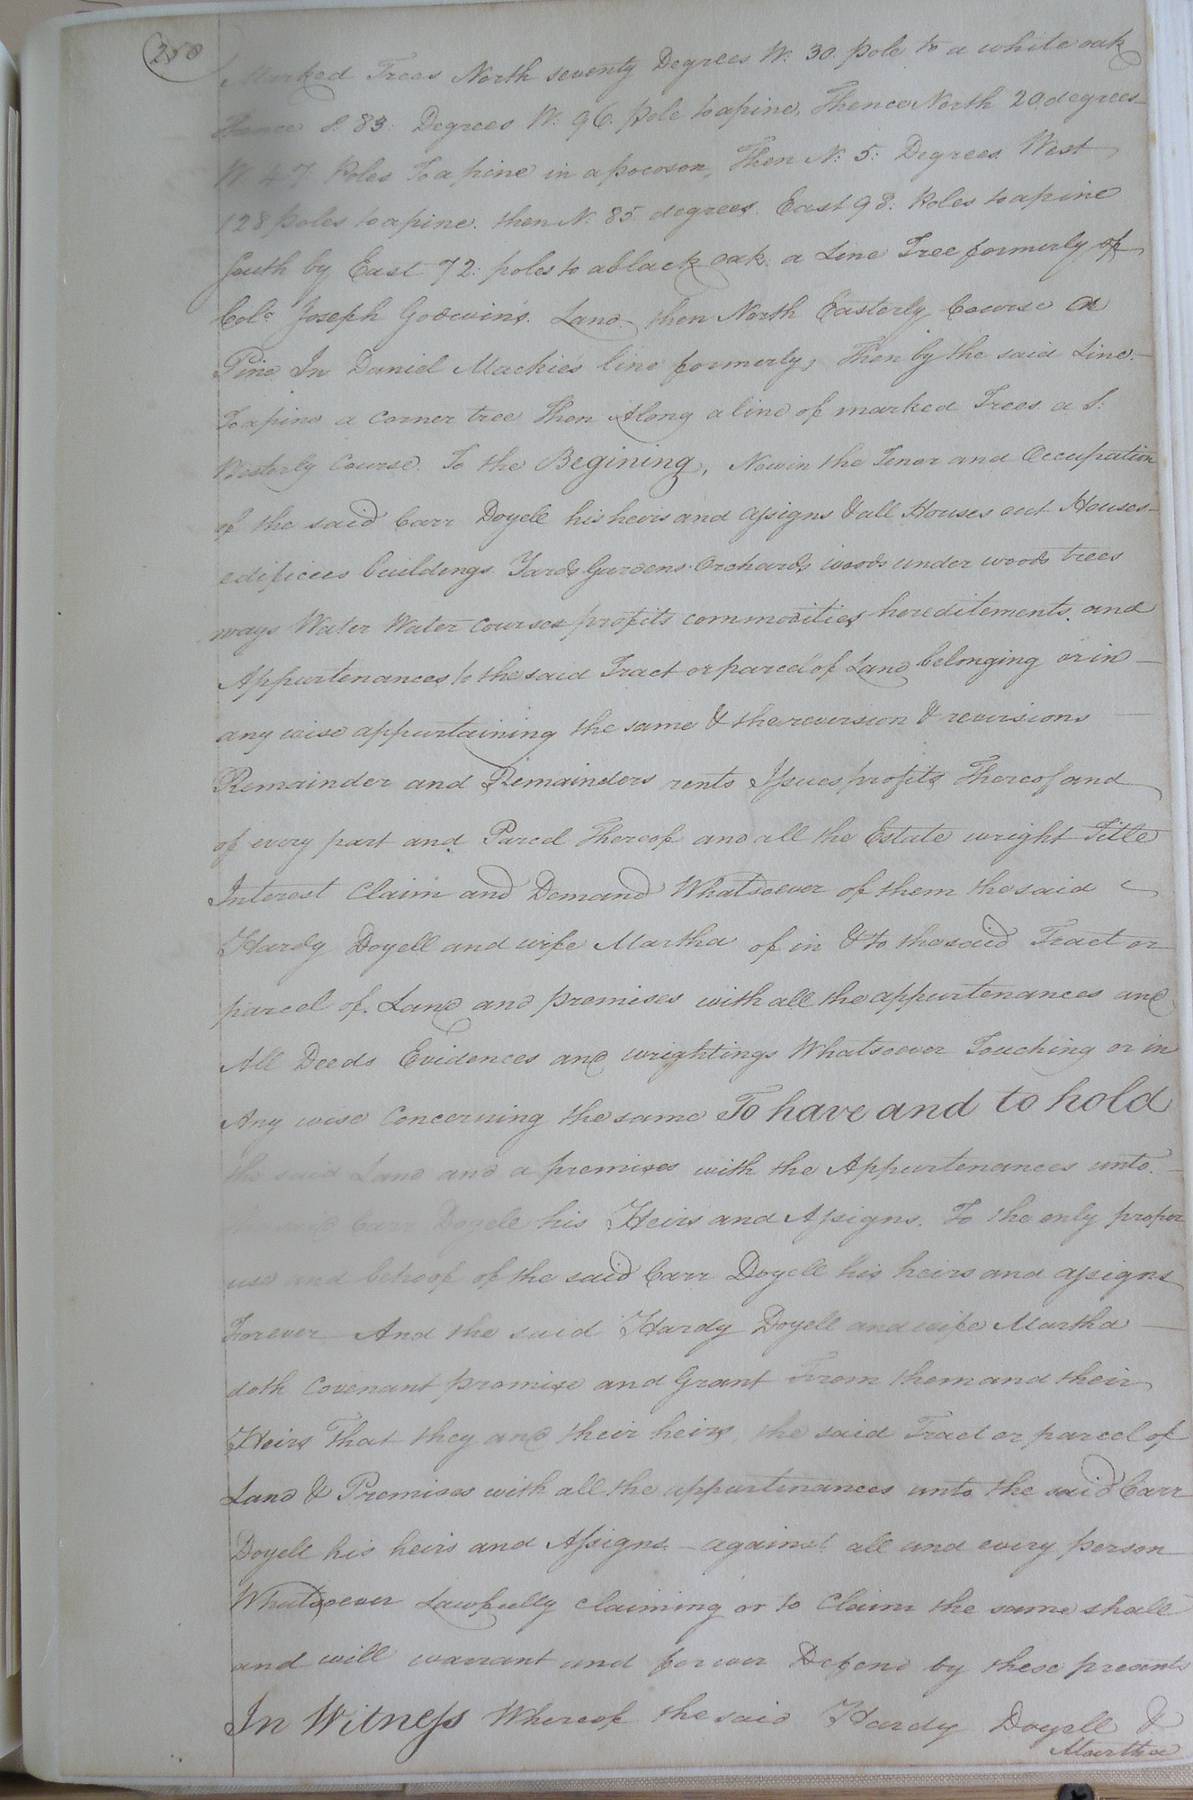 250
Marked Trees North seventy Degrees W. 30 pole to a white oak
thence S. 83. Degrees W. 96. pole to a pine, Thence North 20 degrees
W. 47 Poles To a pine in a pocoson, Then N: 5: Degrees West
128 poles to a pine. then N. 85 degrees. East 98. Poles to a pine
South by East 72: poles to a black oak. a Line Tree formerly of
Colo. Joseph Godwin's. Land - then North Easterly Course a
Pine In Daniel Mackie's line formerly, Then by the said Line.-
To a pine a corner tree Then Along a line of marked Trees a S.
Westerly Course. To the Begining, Now in the Tenor and Occupation
of the said Carr Doyell his heirs and assigns & all Houses out Houses-
edificees buildings Yards Gardens Orchards woods under woods trees
ways Water Water courses profits commodities hereditements. and
Appurtenances to the said Tract or parcel of Land belonging or in -
any wise appurtaining the same & the reversion & reversions -
Remainder and Remainders rents Issues profits Thereof and
of every part and Parcel Thereof and all the Estate wright Title
Interest Claim and Demand Whatsoever of them the said
Hardy Doyell and wife Martha of in & to the said Tract or
parcel of Land and premises with all the appurtenances and
All Deeds Evidences and wrightings Whatsoever Touching or in
Any wise Concerning the same To have and to hold
the said Land and a premises with the Appurtenances unto. -
the said Carr Doyell his Heirs and Assigns. To the only proper
use and behoof of the said Carr Doyell his heirs and assigns
Forever And the said Hardy Doyell and wife Martha -
doth Covenant promise and Grant From them and their
Heirs That they and their heirs, the said Tract or parcel of
Land & Premises with all the appurtinances unto the said Carr
Doyell his heirs and Assigns - against all and every person
Whatsoever Lawfully claiming or to Claim the same shall
and will warrant and forever Defend by these presents
In Witness Whereof the said Hardy Doyell &
Martha